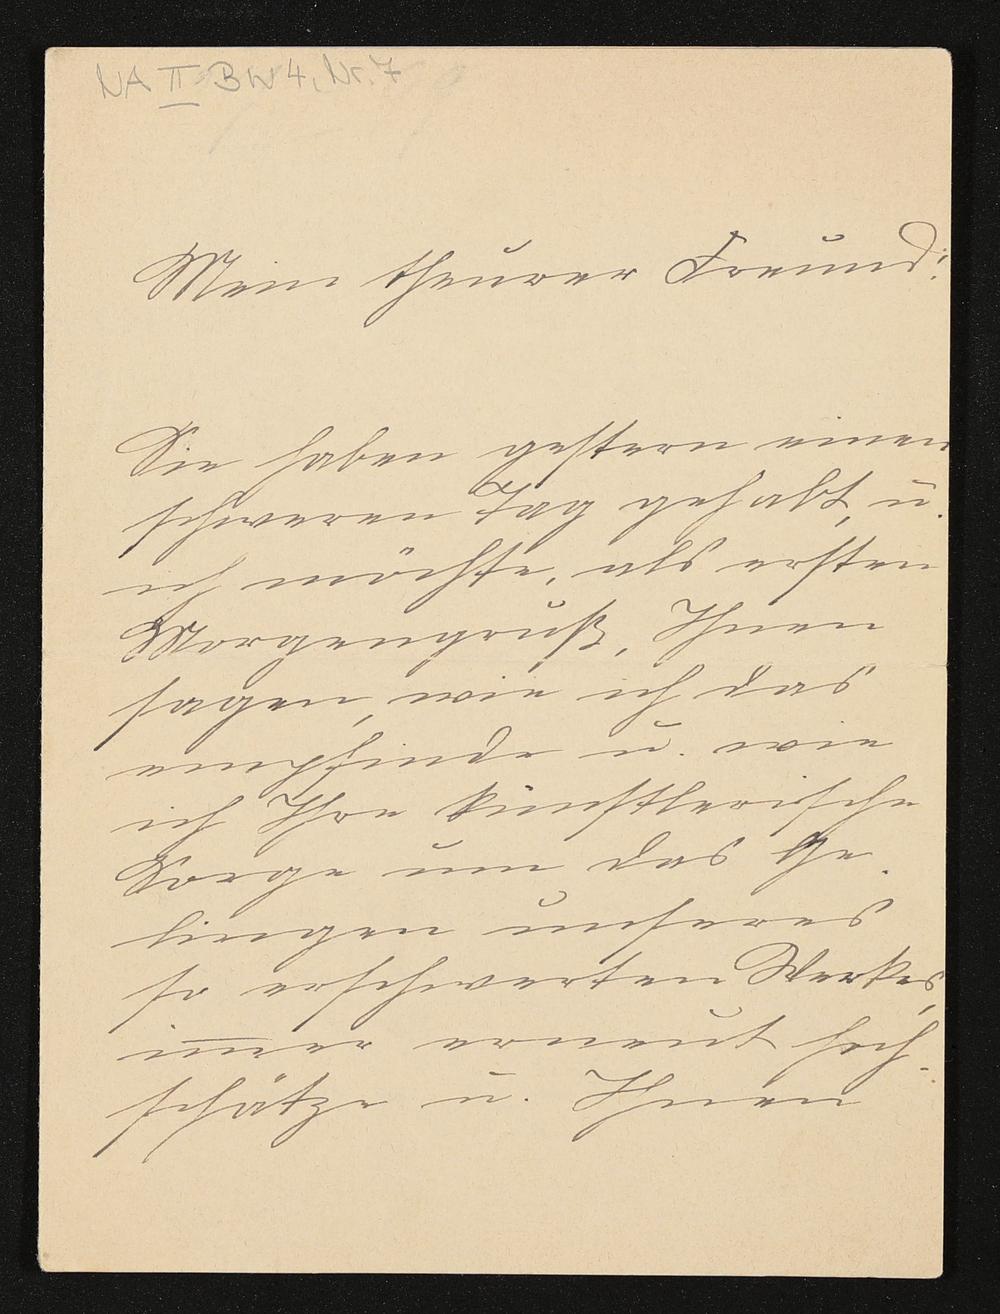 NA II BW 4, Nr. 7
Mein theurer Freund!
Sie haben gestern einen
schweren Tag gehabt, u.
ich möchte, als ersten
Morgengruß, Ihnen
sagen, wie ich das
empfinde u. wie
ich Ihre künstlerische
Sorge um das Ge-
lingen unseres
so erschwerten Werkes,
immer erneut hoch-
schätze u. Ihnen